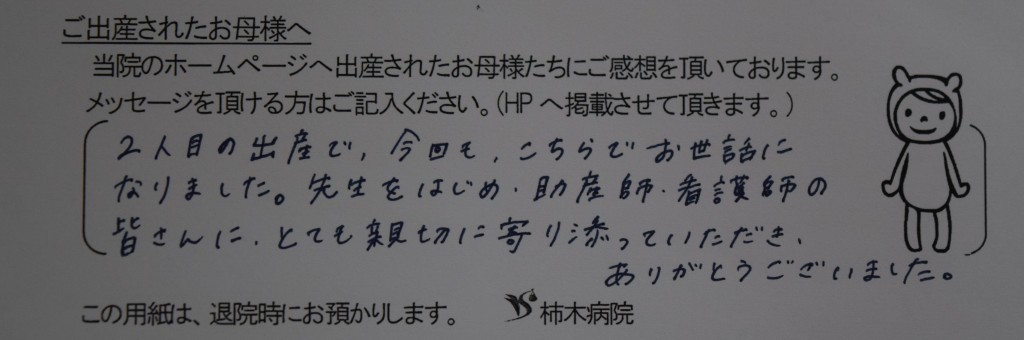 ご出産されたお母様へ
当院のホームページへ出産されたお母様たちにご感想を頂いております。
メッセージを頂ける方はご記入ください。(HPへ掲載させて頂きます。)
2人目の出産で、今回も、こちらでお世話に
なりました。先生をはじめ・助産師・看護師の
皆さんに、とても親切に寄り添っていただき、
ありがとうございました。
この用紙は、退院時にお預かりします。 柿木病院